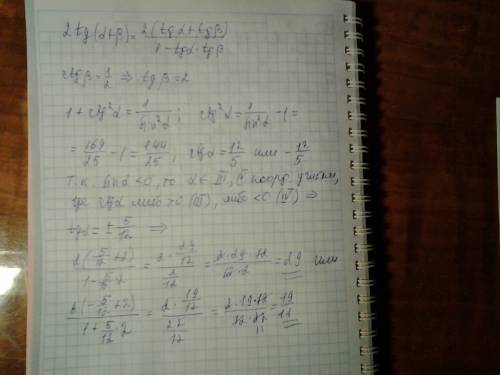 2tg(α+β) = 2(tgα + tgβ) / (1 - tgα·tgβ)
ctgβ = 1/2 ⇒ tgβ = 2
1 + ctg²α = 1/sin²α ; ctg²α = 1/sin²α - 1 =
= 169/25 - 1 = 144/25 ; ctgα = 12/5 или - 12/5
Т.к. sinα < 0, то α ∈ III, IV коорд. углам,
где ctgα либо > 0 (III), либо < 0 (IV) ⇒
tgα = ± 5/12 ⇒
2(5/12 + 2) / (1 - 5/12·2) = 2·29/12 / 2/12 = 2·29·12 / 12·2 = 29 или
2(-5/12 + 2) / (1 + 5/12·2) = 2·19/12 / 22/12 = 2·19·12 / 12·22 11 = 19/11